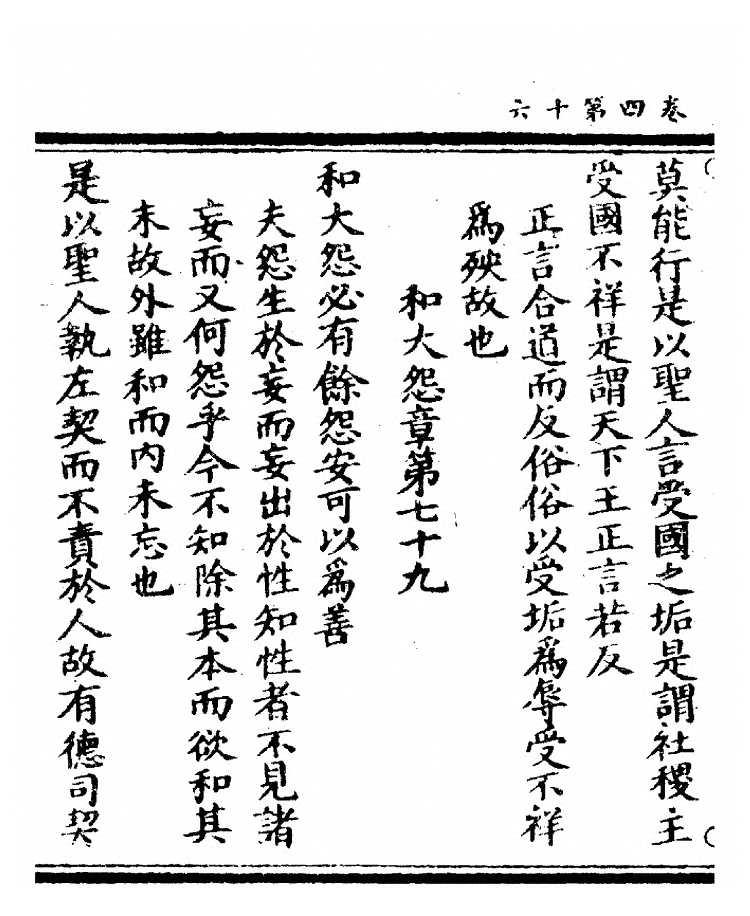 卷四第十六
莫能行是以聖人言受國之垢是謂社稷主
受國不祥是謂天下王正言若反
正言合道而反俗俗以受垢爲辱受不祥
爲殃故也
和大怨章第七十九
和大怨必有餘怨安可以爲善
夫怨生於妄而妄出於性知性者不見諸
妄而又何怨乎今不知除其本而欲和其
末故外雖和而内未忘也
是以聖人執左契而不責於人故有德司契